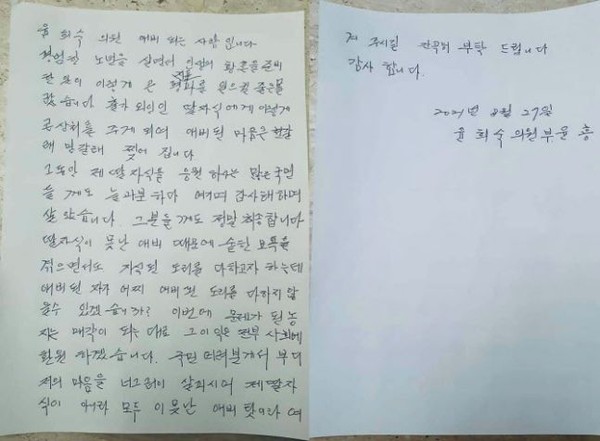 윤 희숙 의원 애비 되는 사람 입니다
평화를
출가 외인인 딸자식에게 이렇게
큰 상처를 주게 되여 애비된 마음은 천갈
래 만갈래 찢어 집니다
그동안 제 딸자식을 응원 하시는 많은 국민
들 께도 늘 과분하다 여기며 감사해 하며
살았습니다. 그분들께도 정말 죄송합니다
딸자식이 못난 애비 때문에 숱한 모욕을
겪으면서도 자식된 도리를 다하고자 하는데
애비된 자가 어찌 애비된 도리를 다하지 않
을수 있겠 습니까? 이번에 문제가 된 농
지는 매각이 되는 대로 그 이익은 전부 사회에
환원 하겠습니다. 국민 여러분께서 부디
저의 마음을 너그러이 살피시어 제 딸자
식이 아니라 모두 이 못난 애비 탓이라 여
겨 주시길 간곡히 부탁 드립니다
감사 합니다.
2021년 8월 27일
윤 희숙 의원 부 윤 홍